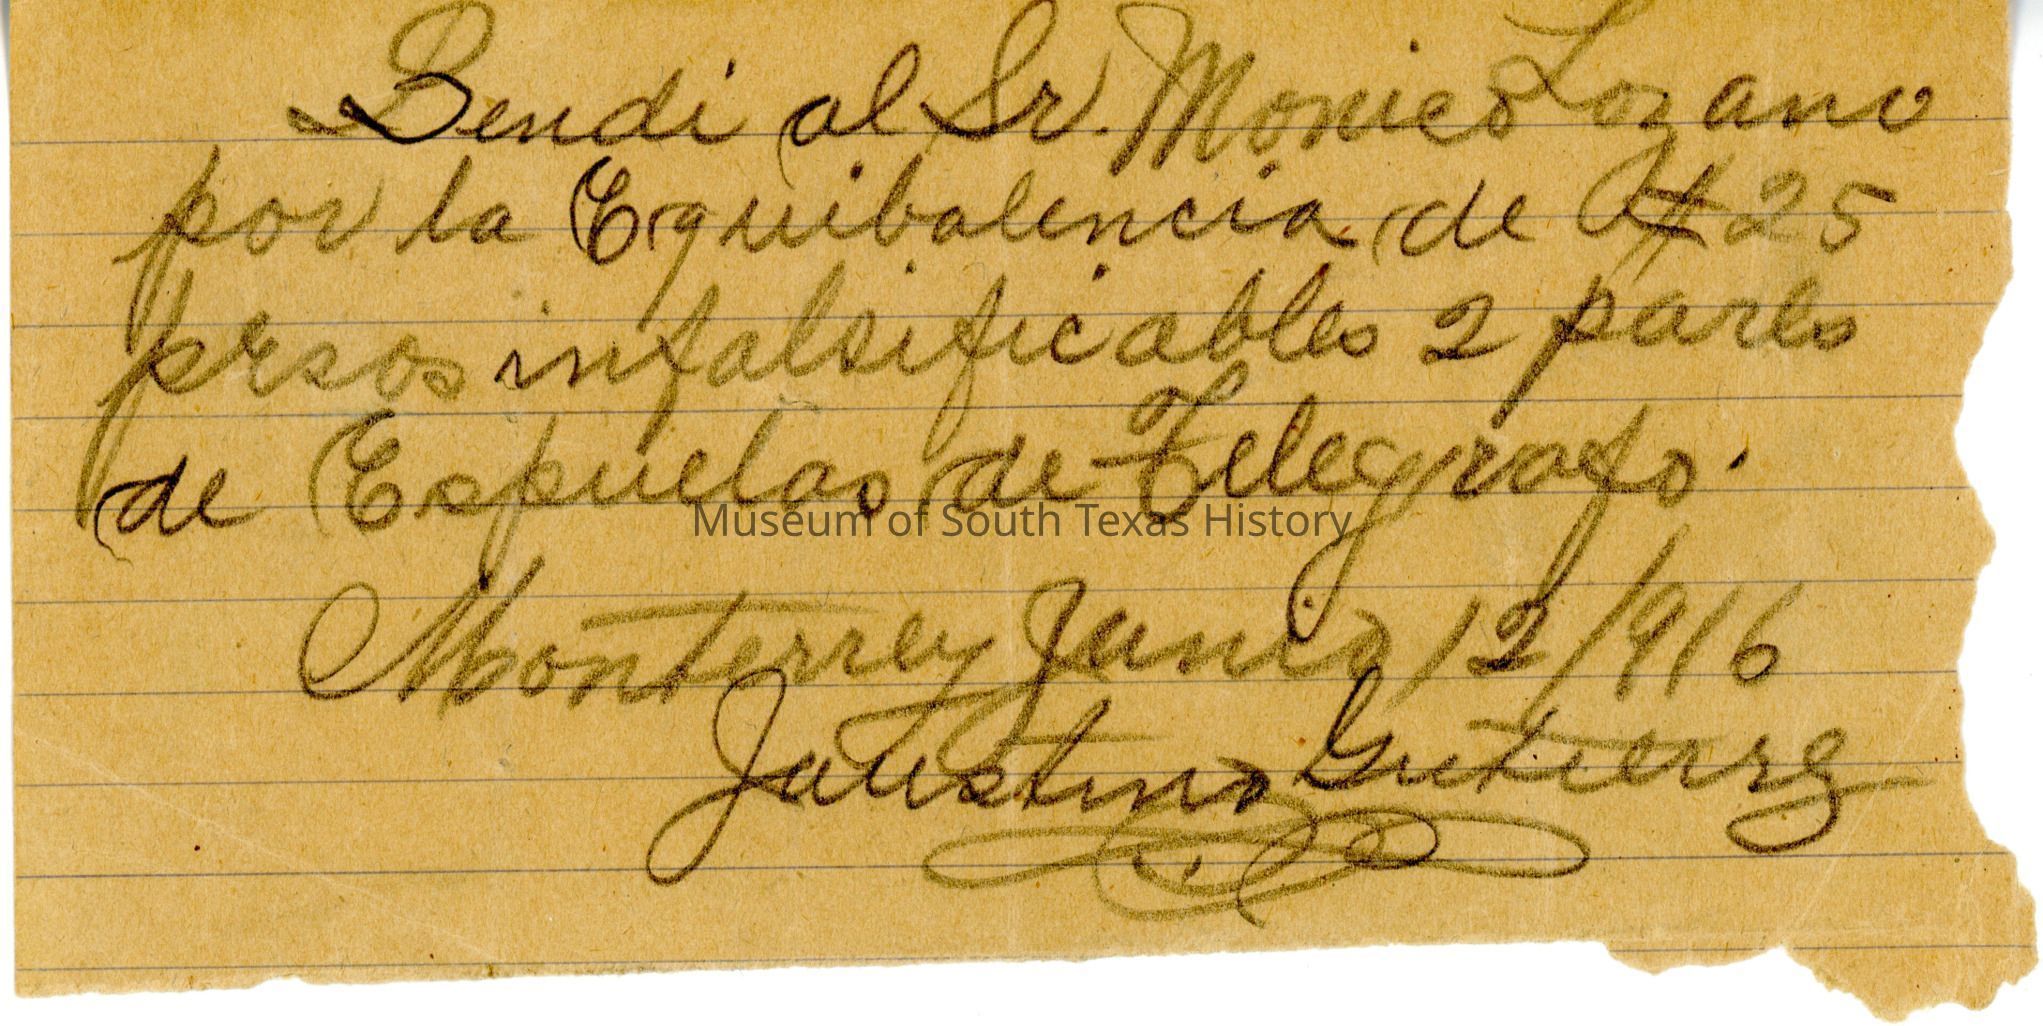 Bendi al Sr. Monico Lozano
por la Equibalencia de $25
pesos infalsificables 2 pares
de Espuelas de Telegrafo.
Museum of South Texas History
Monterrey Junio 12/916
Faustino Gutierrez